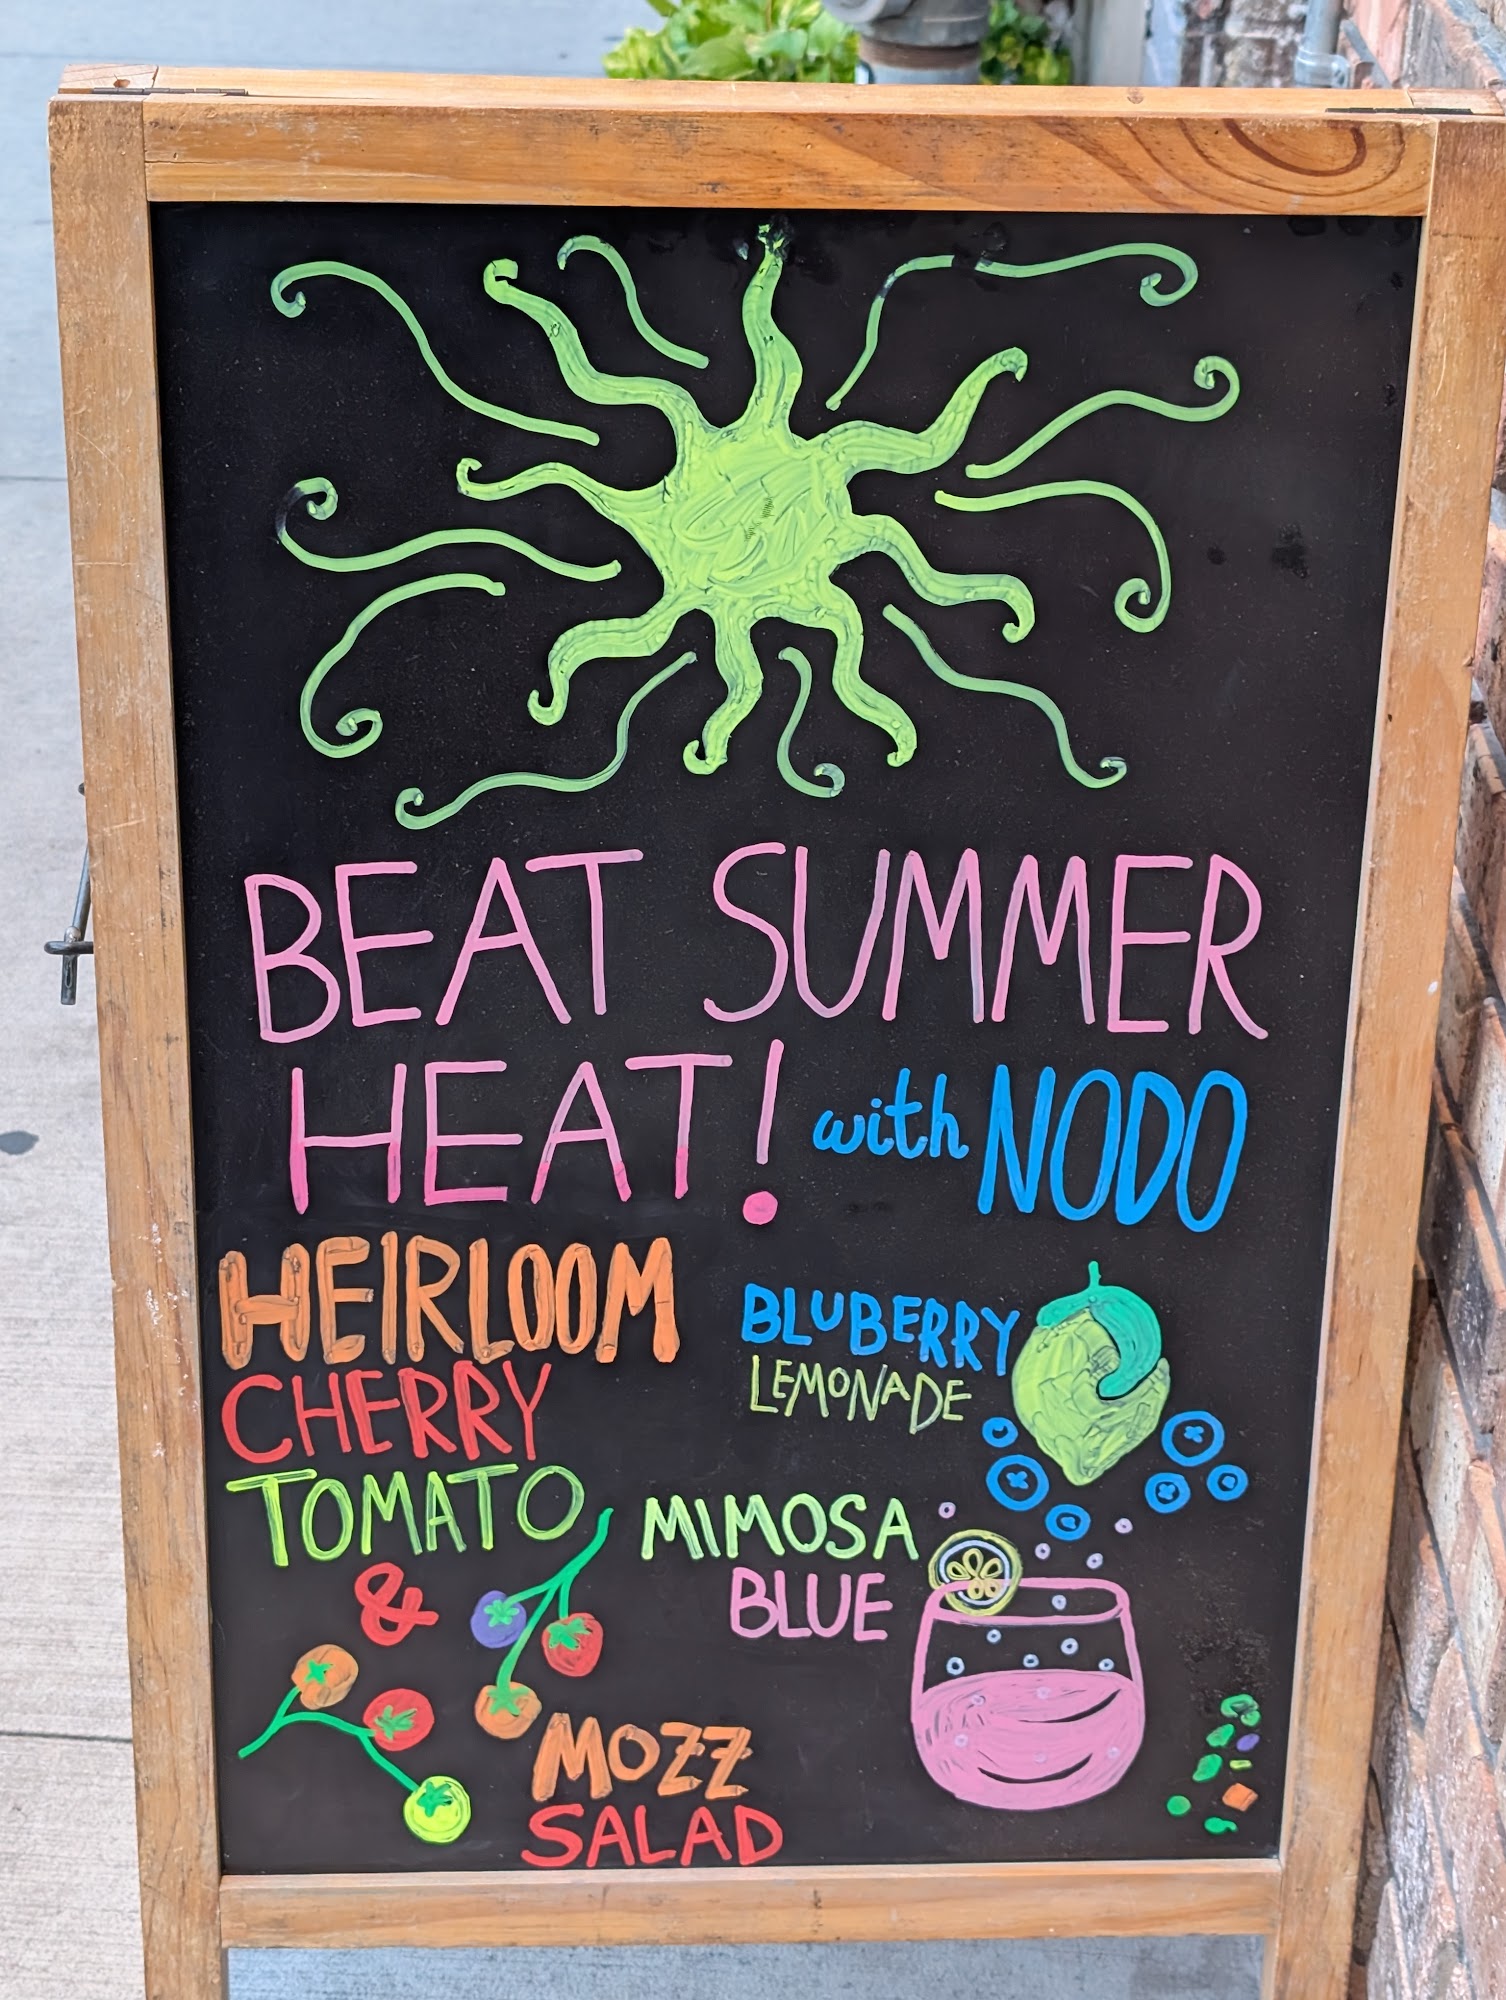 BEAT SUMMER
HEAT! with NODO
HEIRLOOM
CHERRY
TOMATO
&
MOZZ
SALAD
BLUBERRY
LEMONADE
MIMOSA
BLUE